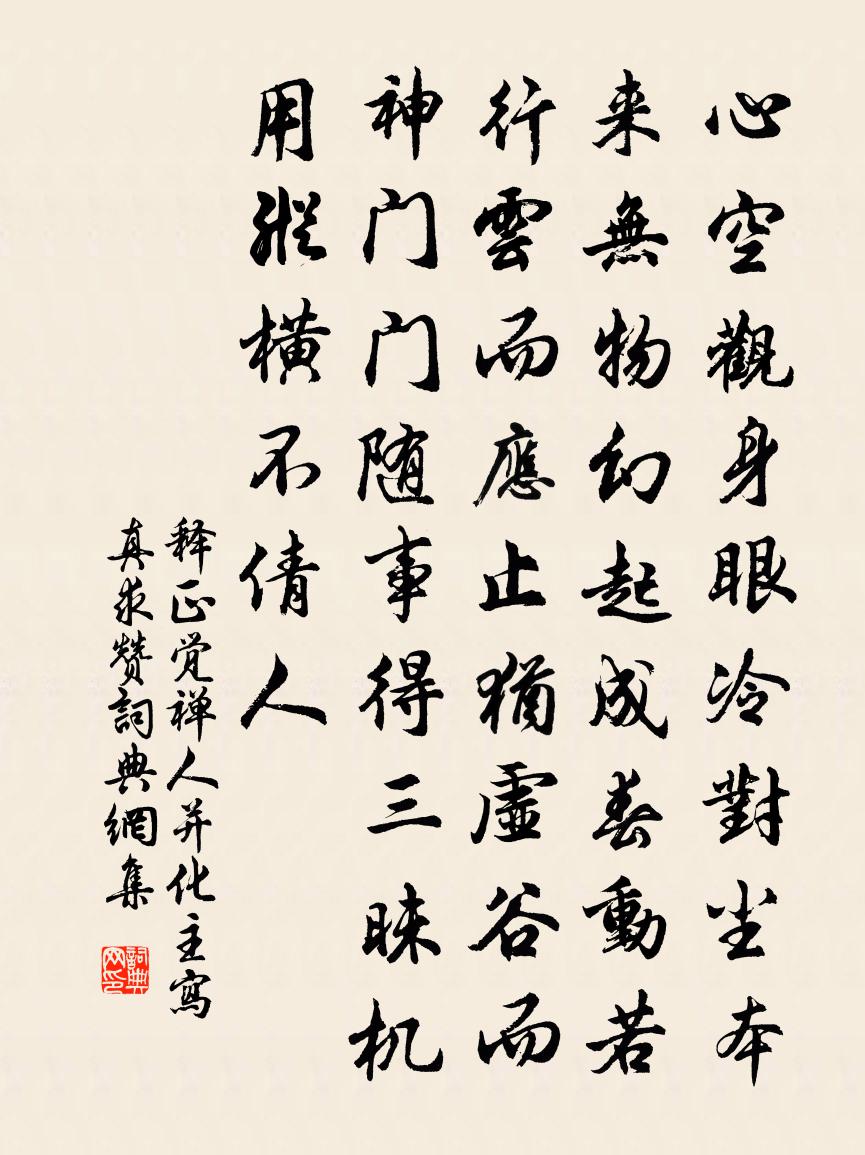 心空觀身眼冷對尘本
来無物幻起成春動若
行雲而應止猶虛谷而
神门门随事得三昧机
用縱横不倩人
释正觉禅人并化主寫
真求赞詞典網集
詞典网印